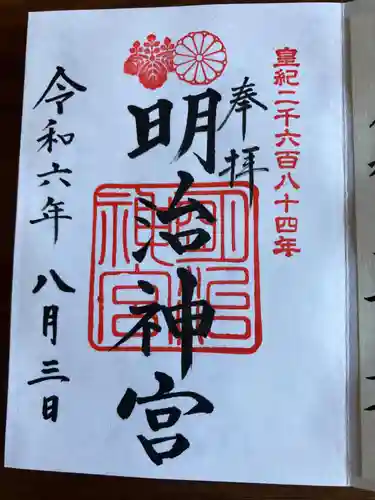 皇紀二千六百八十四年
奉拝
明治神宮
明治神宮
令和六年八月三日